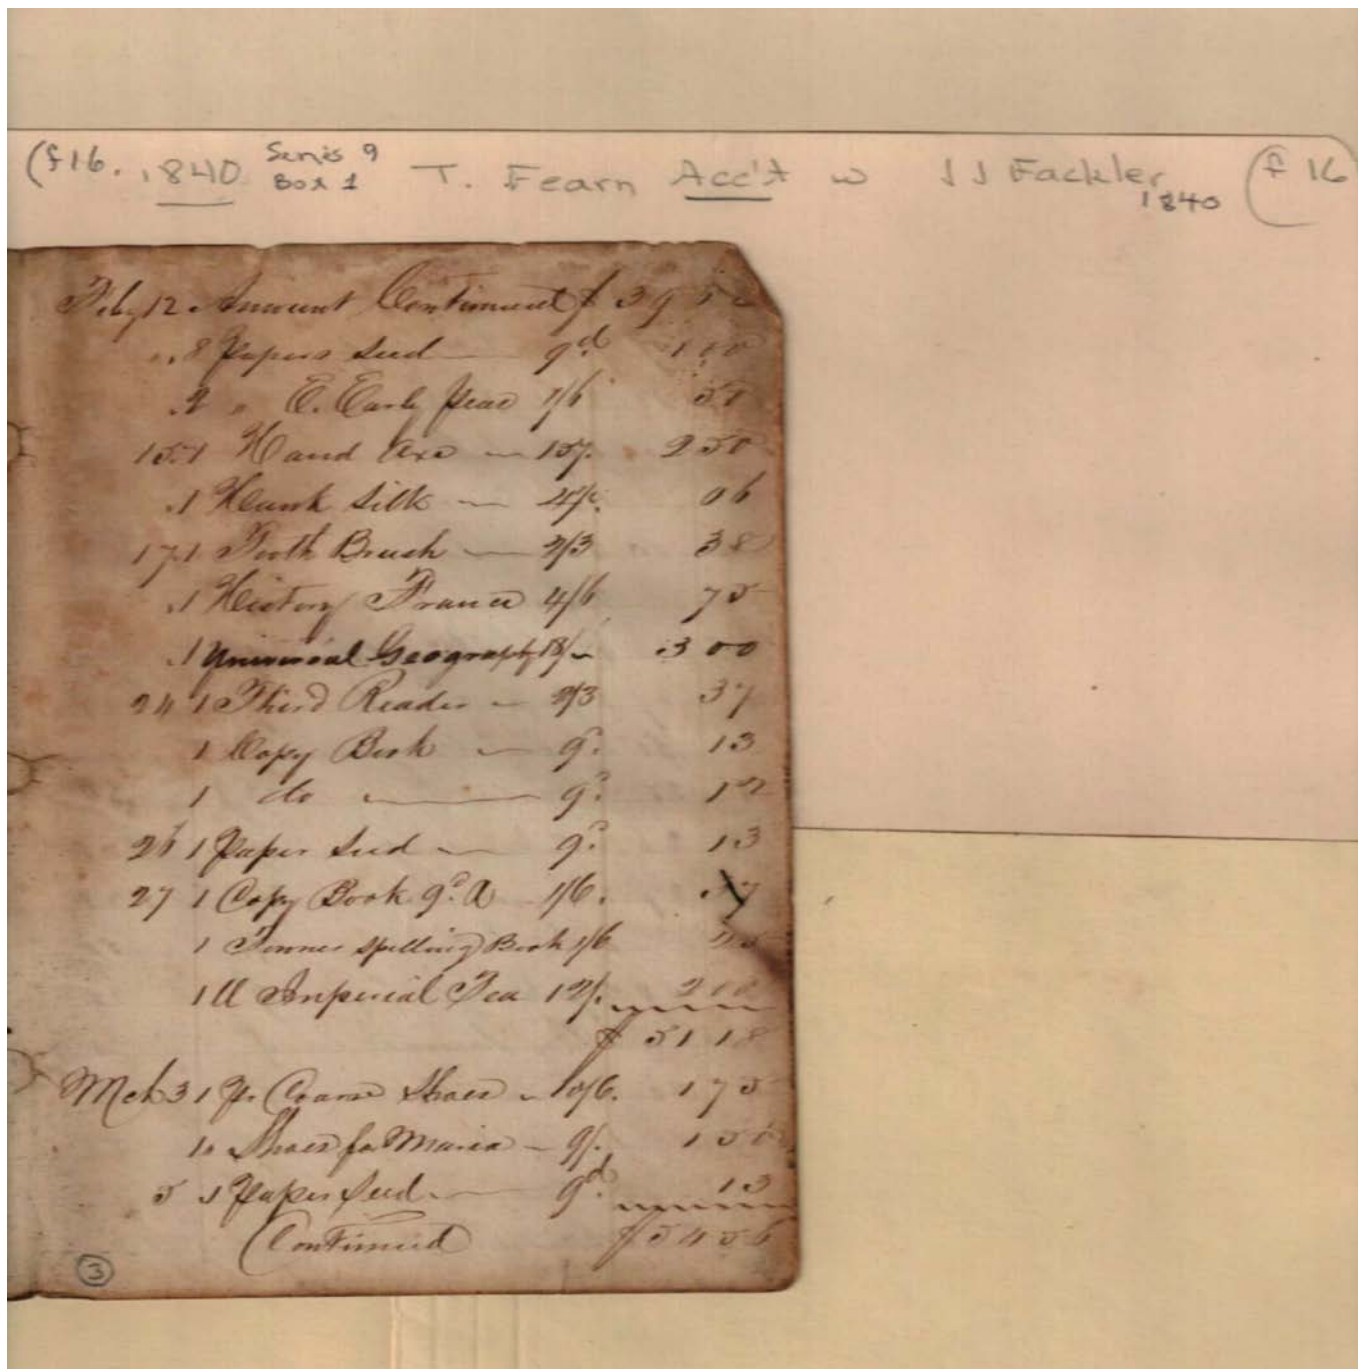 (f16. 1840 Series 9 Box 1 T. Fearn Acc't w JJ Fackler 1840 (f 16
Feby 12 Amount Continued $ 39 5
" 8 Papers Seed — 9d. 1 00
2 " E. Early Peas 1/6
15. 1 Hand Axe — 15/. 2 50
" 1 Hank Silk — 06
17. 1 Tooth Brush — 2/3 38
" 1 History France 4/6 75
" 1 Universal Geography 18/– 3 00
24 1 Third Reader — 2/3 37
1 Copy Book — 9d. 13
1 do — 9d. 12
26 1 Paper Seed — 9d. 13
27 1 Copy Book 9d. a 1/6. 37
1 Townes Spelling Book 1/6
1 ll Imperial Tea 12/. 2 00
$ 51 18
Mch 3 1 Pr Coarse Shoes — 10/6. 1 75
1 " Shoes for Maria — 9/. 1 50
5 1 Paper Seed — 9d. 13
Continued $ 54 56
3